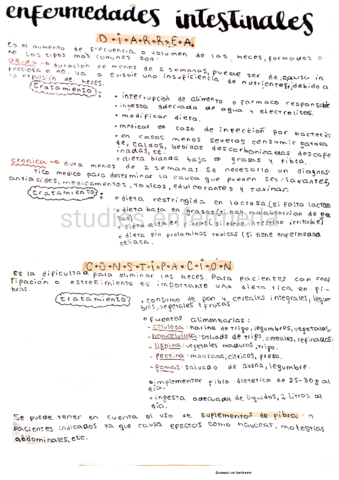 enfermedades intestinales
D·I·A·R·R·E·A
Es el aumento de frecuencia o volumen de las heces, formadas o
no. Las tipos más comunes son:
Aguda → duración de menos de 2 semanas, puede ser de causa in
fecciosa o no. Va a existir una insuficiencia de nutrientes, debido a
la expulsión de heces.
tratamiento:
• interrupción de alimento o farmaco responsable
• ingesta adecuada de agua y electrolitos.
• modificar dieta.
• medicar en caso de infección por bacterias
• en casos menos severos consumir gatorade, caldos, bebidas descarbonizadas descafe
inadas, té.
• dieta blanda baja en grasas y fibra.
crónica → dura menos de 2 semanas se necesario un diagnos
tico medico para determinar la causa que pueden ser: laxantes,
antiacidos, medicamentos, toxicos, edulcorantes y toxinas.
tratamiento:
• dieta restringida en lactosa (si falta lactasa
• dieta baja en grasas (si hay malabsorcion de
• dieta alta en fibra (si tiene intestino irritable)
• dieta sin prolaminas toxicas (si tiene enfermedad
celiaca.
studies enfermeria
C·O·N·S·T·I·P·A·C·I·Ó·N
Es la dificultad para eliminar las heces. Para pacientes con cons
tipación o estreñimiento es importante una dieta rica en fi
bras.
tratamiento:
• consumo de pan y cereales integrales, legum
bres, vegetales y frutas
• Fuentes alimentarias:
- celulosa: harina de trigo, legumbres, vegetales.
- hemicelulosa: salvado de trigo, cereales, refinados.
- lignina: vegetales maduros, trigo.
- pectina: manzana, citricos, fresa.
- gomas: salvado de avena, legumbre.
• implementar fibra dietetica de 25-30g al
día.
• ingesta adecuada de liquidos, 2 litros al
día.
Se puede tener en cuenta el uso de suplementos de fibra: n
pacientes indicados ya que causa efectos como nauceas, molestias
abdominales, etc.